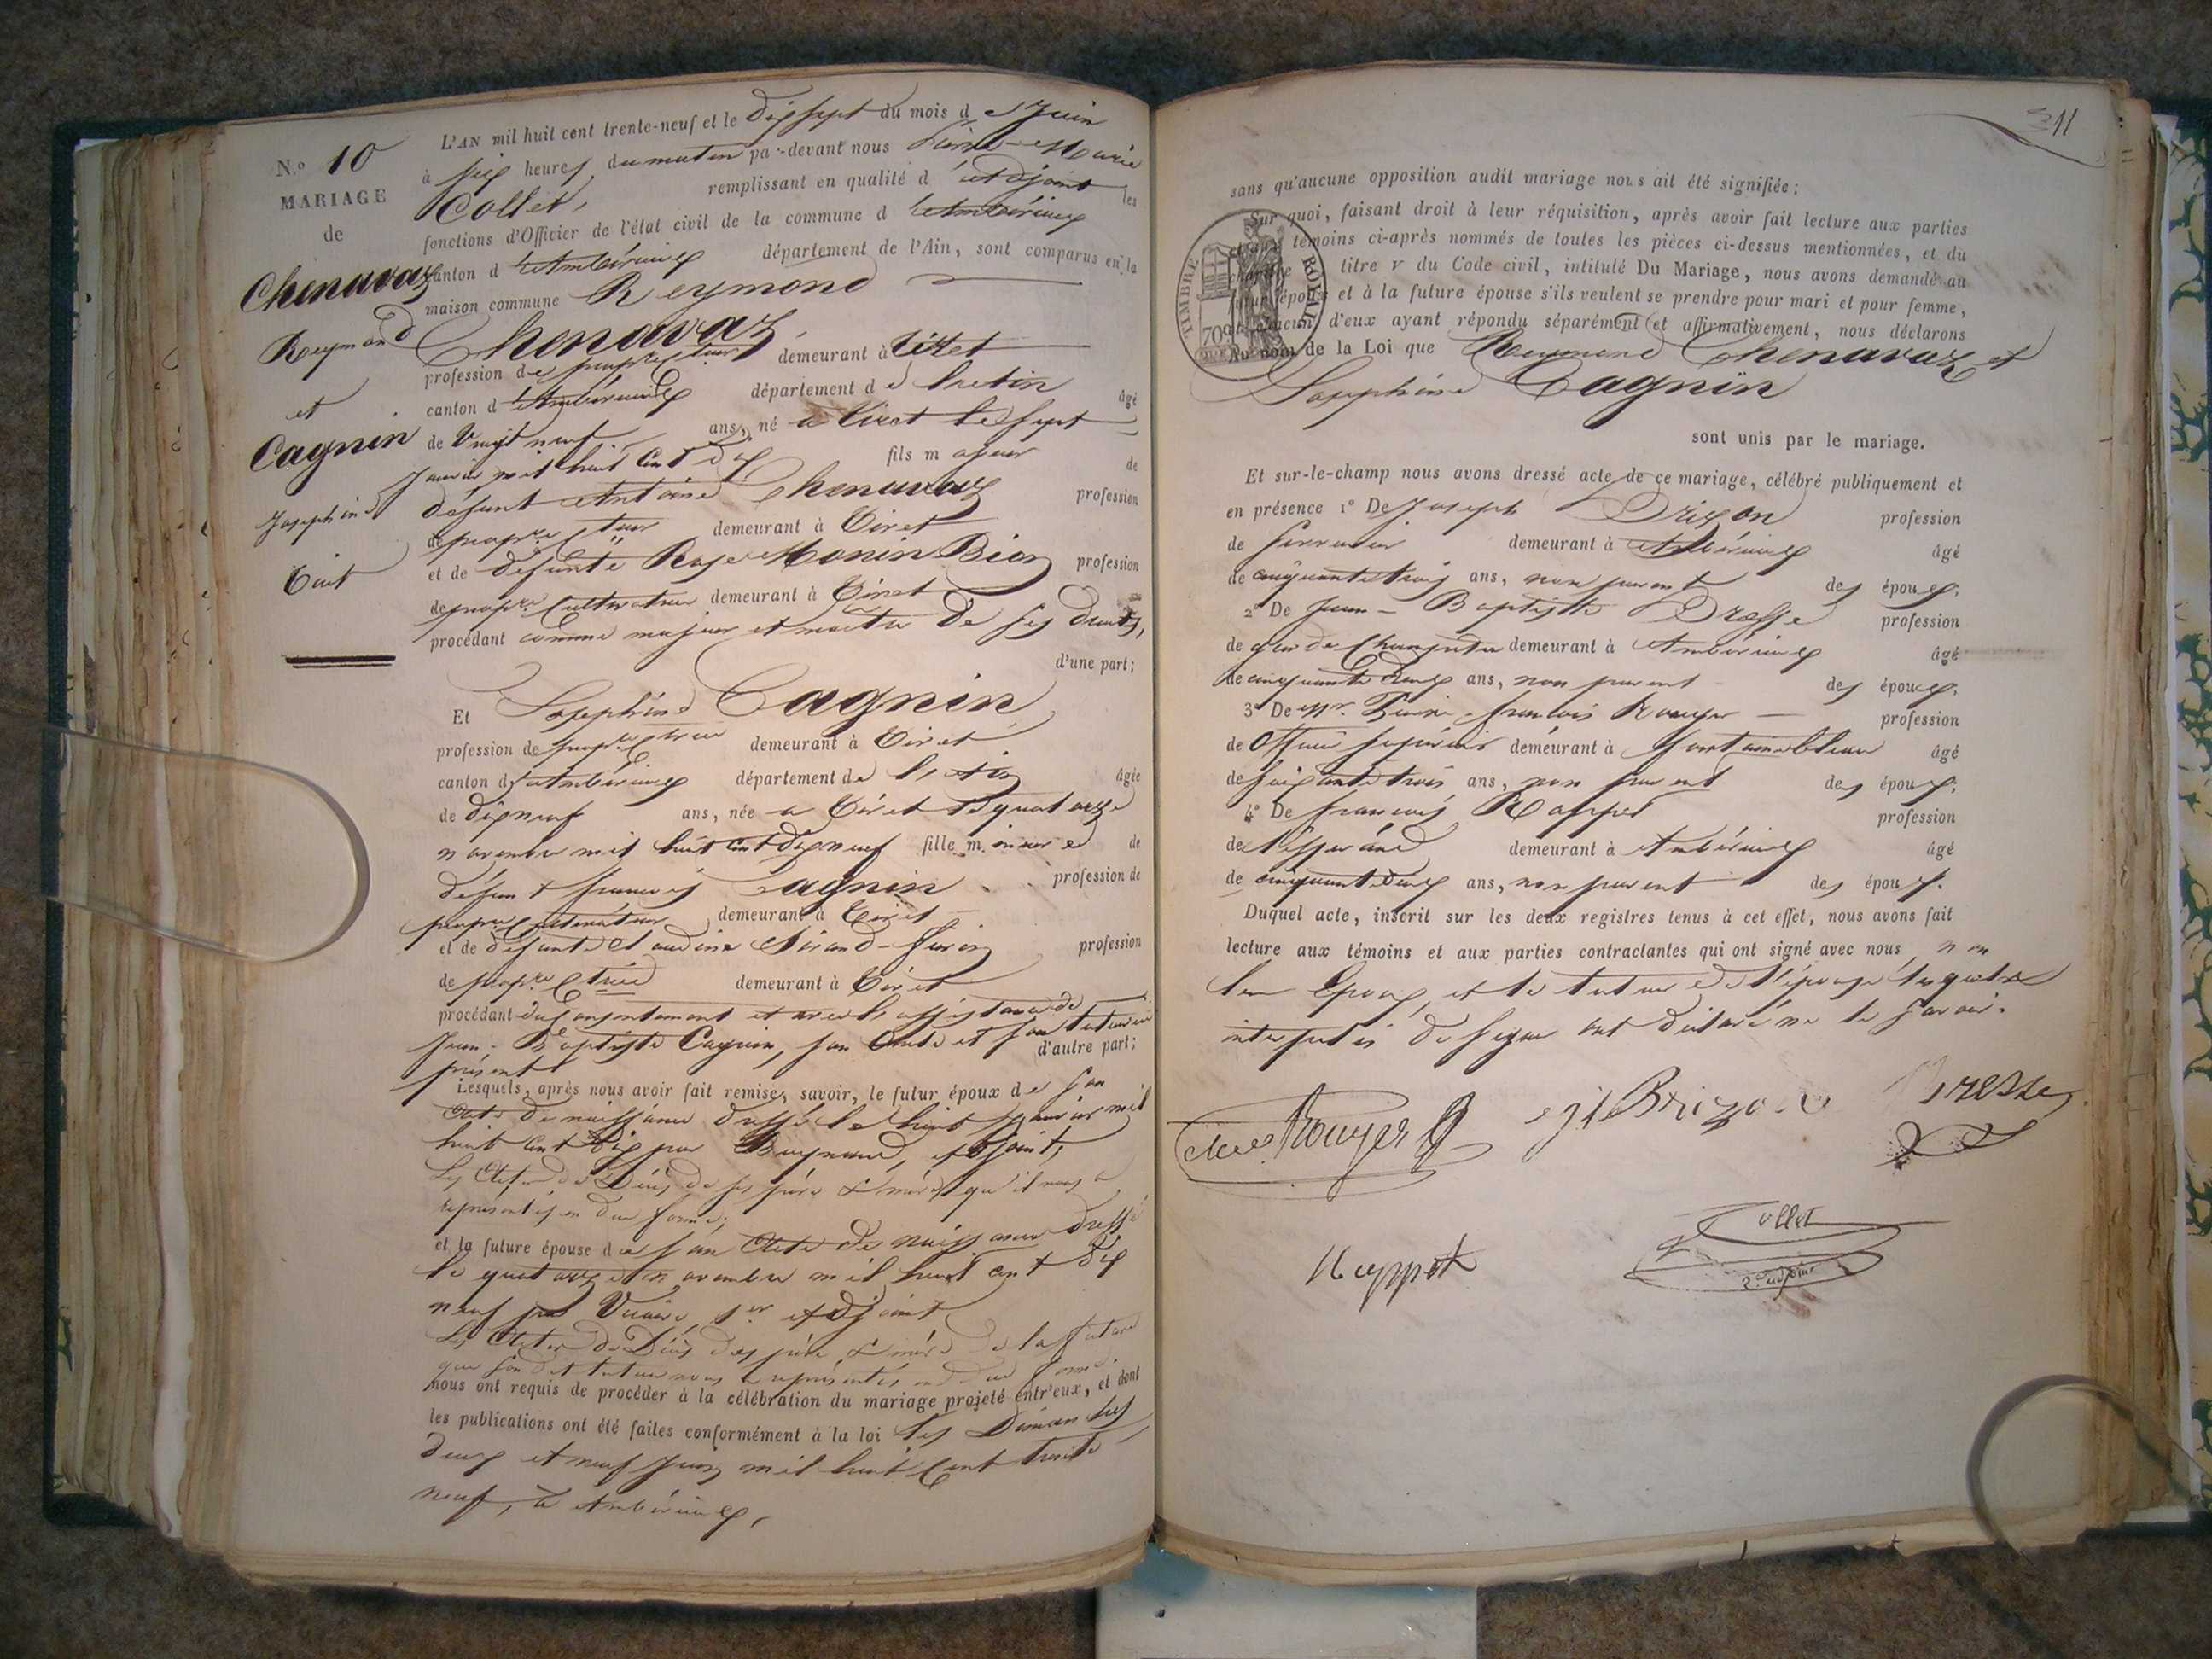 N.o 10
MARIAGE
de
Chenavaz
Reymond
et
Cagnin
Josephine
L'AN mil huit cent trente-neuf et le dix sept du mois de Juin
à six heures du matin par-devant nous Marie
Collet, remplissant en qualité d'adjoint les
fonctions d'Officier de l'état civil de la commune d'Ambérieux
canton d'Ambérieux département de l'Ain, sont comparus en la
maison commune Reymond
Chenavaz,
profession de propriétaire demeurant à Tiret
canton d'Ambérieux département de l'ain âgé
de Vingt neuf ans, né à Tiret le sept
Janvier mil huit cent dix fils majeur de
défunt Antoine Chenavaz profession
de demeurant à Tiret
et de défunte Rose Monin Bion profession
de demeurant à Tiret
procédant comme majeur et maître de ses droits,
d'une part;
Et Josephine Cagnin,
profession de demeurant à Tiret
canton d'Ambérieux département de l'Ain âgée
de dix neuf ans, née à Tiret le quatorze
novembre mil huit cent dix neuf fille mineure de
défunt françois Cagnin profession de
propre Cultivateur demeurant à Tiret
et de défunte Claudine profession
de demeurant à Tiret
procédant du consentement et avec l'assistance de
Jean-Baptiste Cagnin, son Oncle et son tuteur ici
présent d'autre part;
Lesquels, après nous avoir fait remise, savoir, le futur époux de son
acte de naissance dressé le huit Janvier mil
huit cent dix par adjoint;
Les Actes de Décès de ses père & mère qu'il nous a
représentés en due forme;
et la future épouse de son acte de naissance dressé
le quatorze novembre mil huit cent dix
neuf par 1er Adjoint
Les Actes de Décès des père & mère de la future
que son dit tuteur nous a représentés en due forme.
nous ont requis de procéder à la célébration du mariage projeté entr'eux, et dont
les publications ont été faites conformément à la loi les Dimanches
deux et neuf Juin mil huit cent trente
neuf, à Ambérieux,
311
sans qu'aucune opposition audit mariage nous ait été signifiée;
Sur quoi, faisant droit à leur réquisition, après avoir fait lecture aux parties
témoins ci-après nommés de toutes les pièces ci-dessus mentionnées, et du
titre v du Code civil, intitulé Du Mariage, nous avons demandé au
époux et à la future épouse s'ils veulent se prendre pour mari et pour femme,
chacun d'eux ayant répondu séparément et affirmativement, nous déclarons
Au nom de la Loi que Reymond Chenavaz et
Josephine Cagnin
TIMBRE ROYAL
70
sont unis par le mariage.
Et sur-le-champ nous avons dressé acte de ce mariage, célébré publiquement et
en présence 1o De Joseph Brizon profession
de serrurier demeurant à Ambérieux âgé
de cinquante trois ans, non parent des époux.
2o De Jean-Baptiste Bresse profession
de garde Champêtre demeurant à Ambérieux âgé
de cinquante deux ans, non parent des époux.
3o De Mr. françois Rouyer profession
de Officier supérieur demeurant à fontainebleau âgé
de soixante trois ans, non parent des époux;
4o De françois Ruppet profession
de demeurant à Ambérieux âgé
de cinquante deux ans, non parent des époux.
Duquel acte, inscrit sur les deux registres tenus à cet effet, nous avons fait
lecture aux témoins et aux parties contractantes qui ont signé avec nous, non
les Epoux, et le tuteur de l'épouse lesquels
interpelés de signer ont déclaré ne le savoir.
Rouyer
Brizon
Bresse
Ruppet
Collet